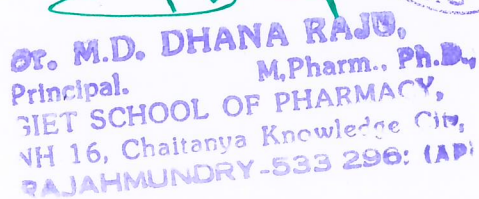 Dr. M.D. DHANA RAJU,
M.Pharm., Ph.D.,
Principal.
GIET SCHOOL OF PHARMACY,
NH 16, Chaitanya Knowledge City,
RAJAHMUNDRY-533 296: (AP)